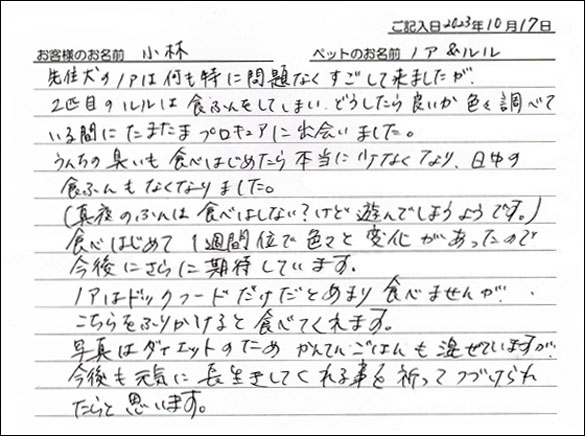 ご記入日2023年10月17日
お客様のお名前 小林 ペットのお名前 ノア&ルル
先住犬のノアは何も特に問題なくすごして来ましたが、
2匹目のルルは食ふんをしてしまい、どうしたら良いか色々調べて
いる間にたまたまプロキュアに出会いました。
うんちの臭いも食べはじめたら本当に少なくなり、日中の
食ふんもなくなりました。
(真夜のふんは食べはしない?けど遊んでしまうようです。)
食べはじめて1週間位で色々と変化があったので
今後にさらに期待しています。
ノアはドックフードだけだとあまり食べませんが、
こちらをふりかけると食べてくれます。
写真はダイエットのためかんてんごはんも混ぜていますが、
今後も元気に長生きしてくれる事を祈ってつづけられ
たらと思います。